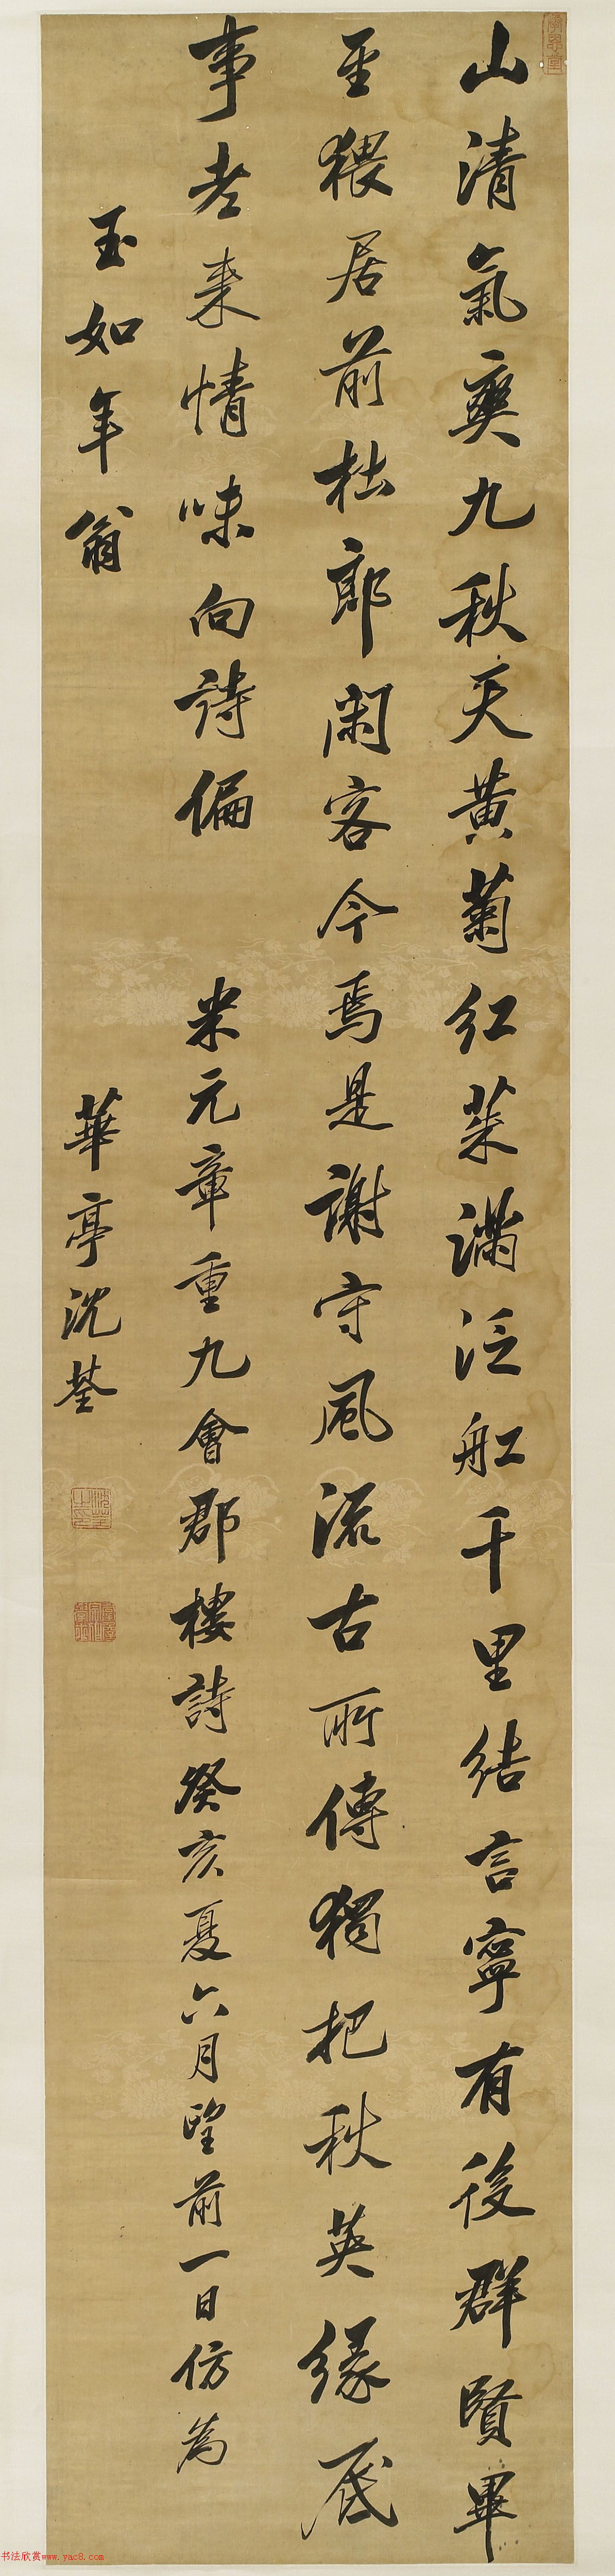 山清氣爽九秋天黄菊紅茱滿泛舡千里結言寧有後群賢畢
至猥居前杜郎閑客今焉是謝守風流古所傳獨把秋英緣底
事老来情味向詩偏 米元章重九會郡樓詩癸亥夏六月望前一日仿為
玉如年翁 華亭沈荃
沈荃之印
书法欣赏www.yac8.com